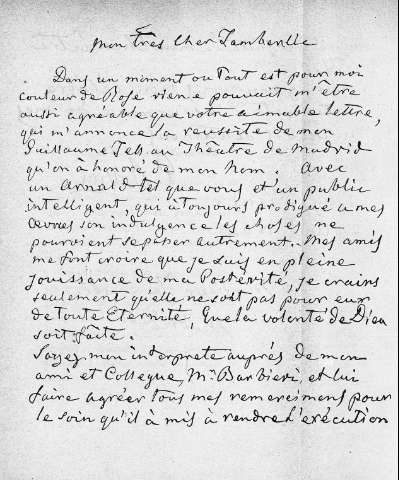 mon Très Cher Tamberlic
Dans un moment ou Tout est pour moi
couleur de Rose rien e pouvait m'être
aussi agréable que votre aimable lettre,
qui m'annonce la reussite de mon
Guillaume Tell au Théâtre de Madrid
qu'on à honoré de mon Nom. Avec
un Arnald tel que vous et d'un public
intelligent, qui à Toujours prodigué a mes
Œuvres son indulgence les choses ne
pourvient se passer autrement. Mes amis
me font croire que je suis en pleine
jouissance de ma Postérité, je crains
seulement qu'elle ne soit pas pour eux
de toute Eternité, que la volonté de Dieu
soit faite.
Soyez mon interprete auprés de mon
ami et Collegue, Mr. Barbieri, et lui
faire agréer tous mes remerciments pour
le soin qu'il à mis à rendre l'exécution